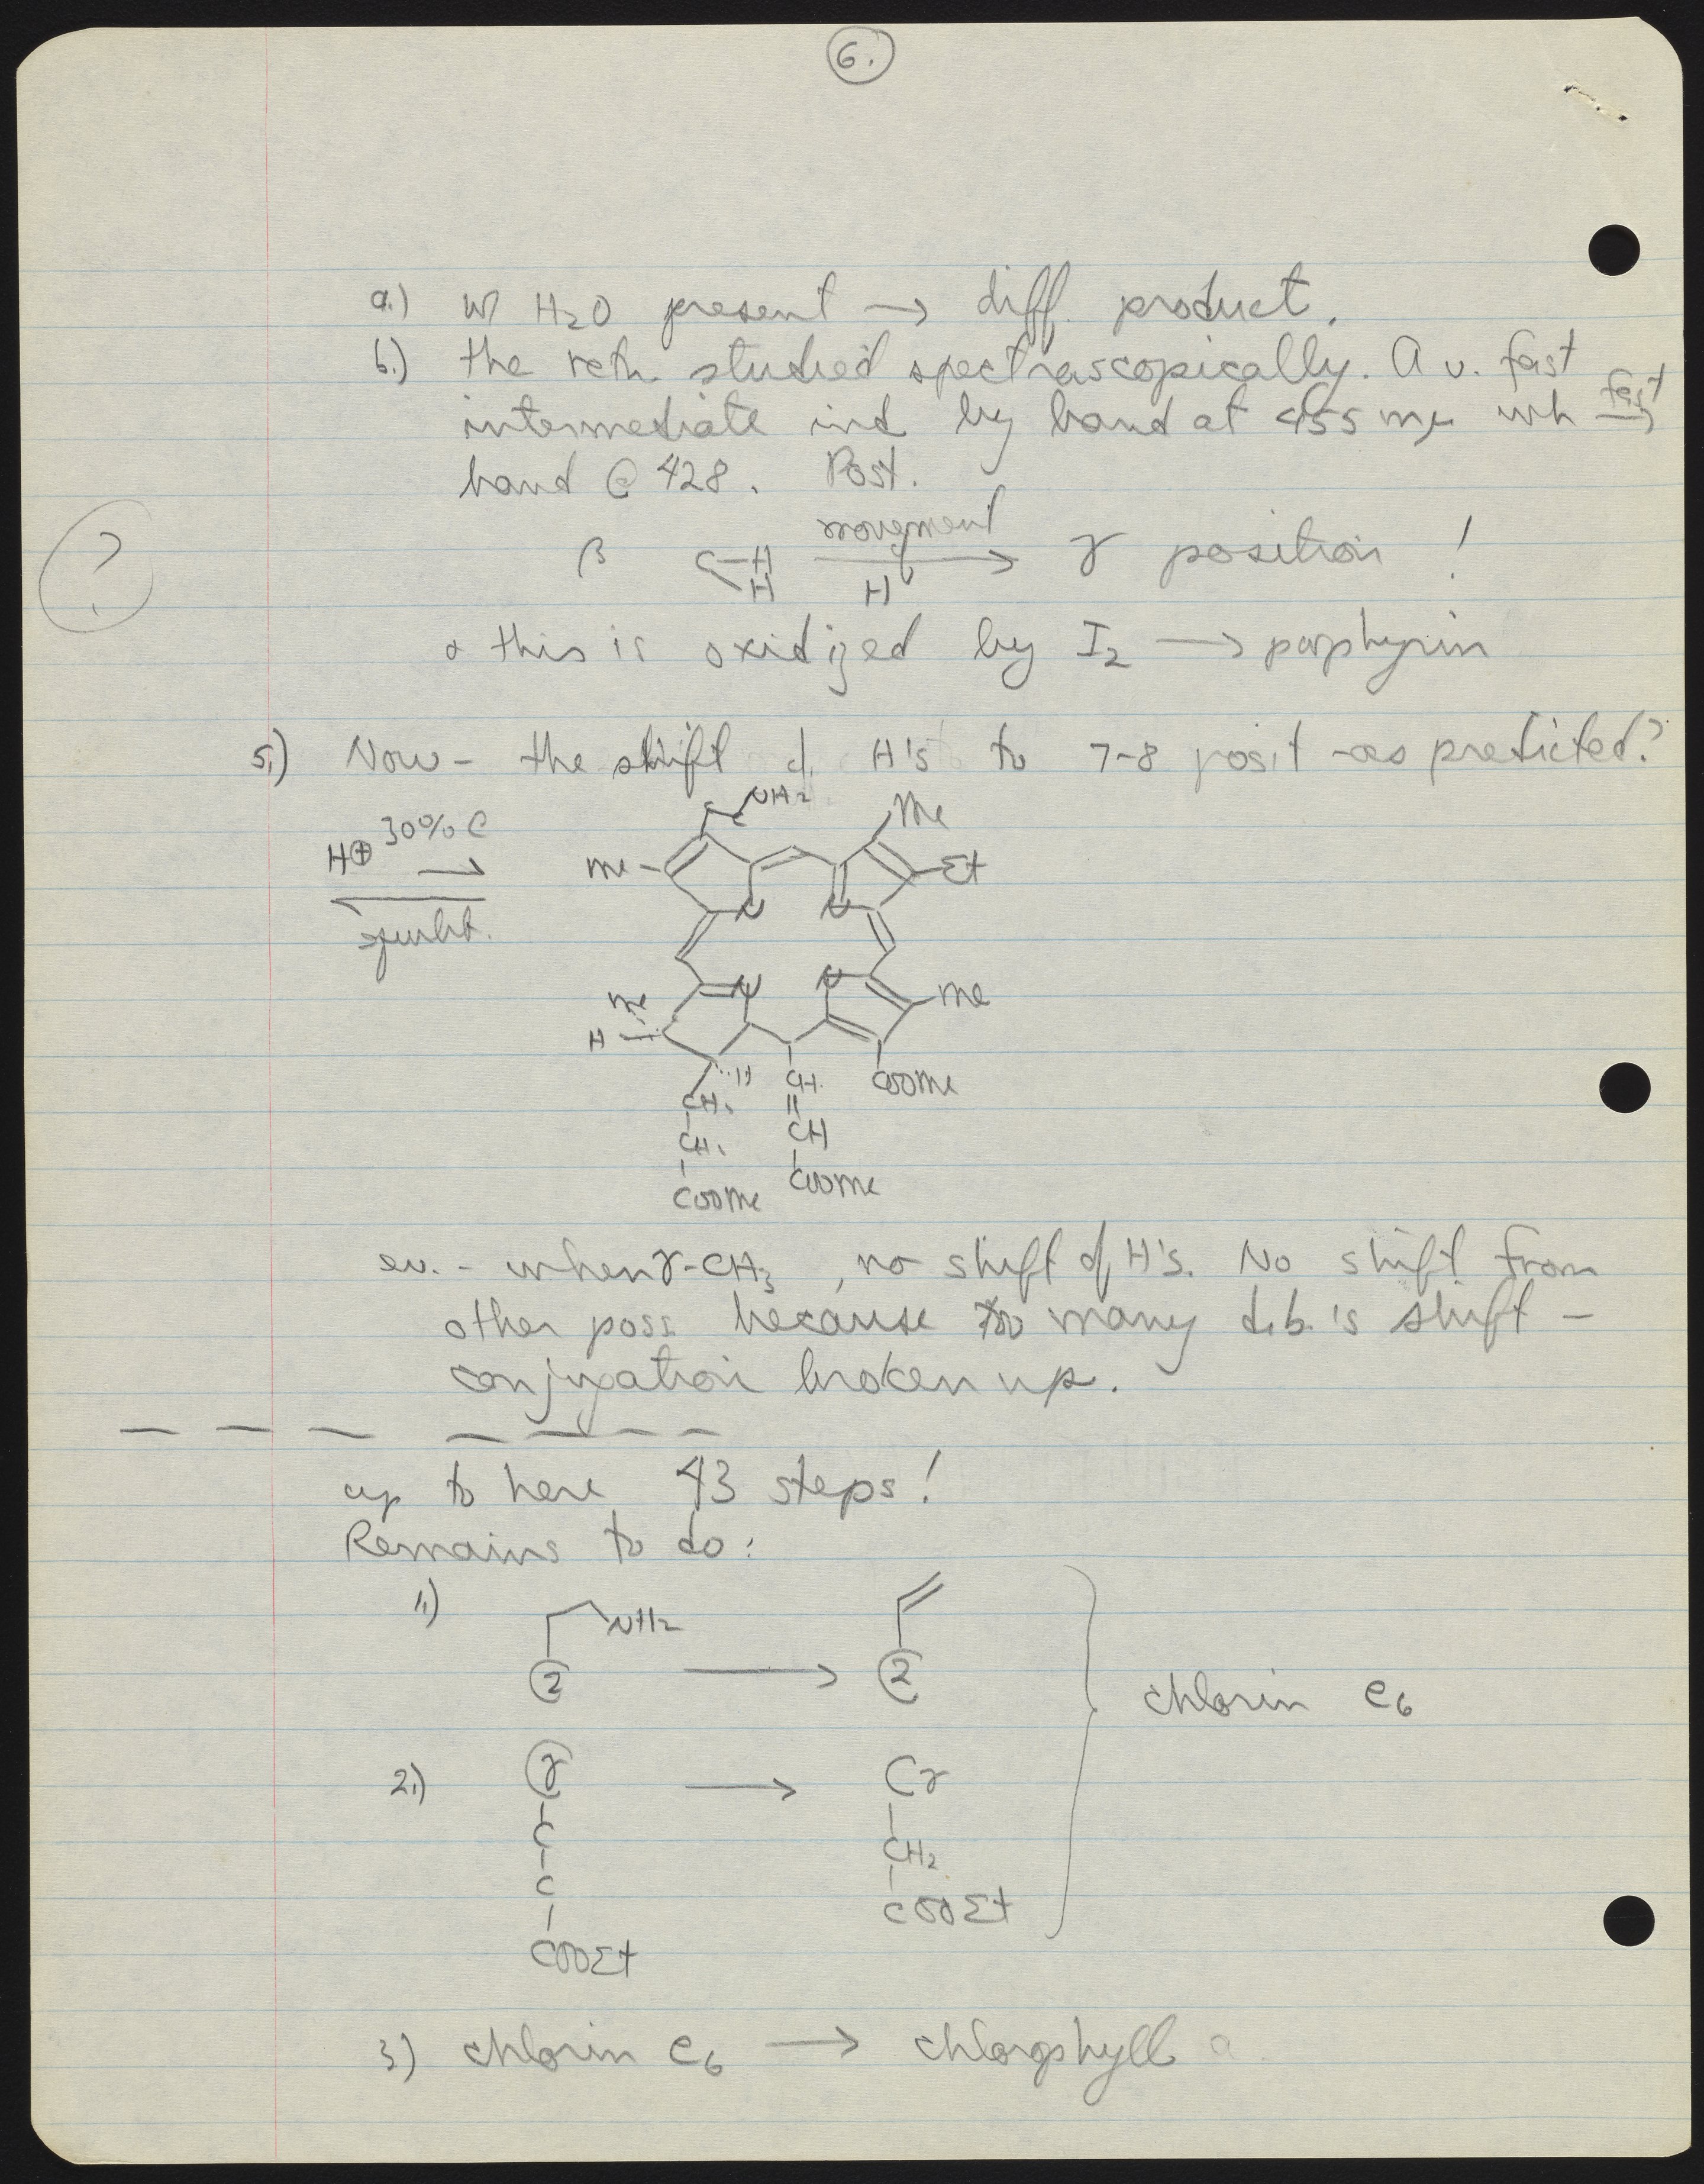 6.
a.) w/ H2O present → diff. product.
b.) the rctn. studied spectrascopically. A v. fast
intermediate ind by band at 455 mμ wh fast →
band @ 428. Post.
?
β C-H H movement H → γ position !
& this is oxidized by I2 → porphyrin
5.) Now - the shift of H's to 7-8 posit - as predicted?
NH2
Me
H⊕ 30% C
Me Et
N N
N N
Me Me
H
H CH COOMe
CH2 ||
CH2 CH
COOMe COOMe
ev. - when γ-CH3, no shift of H's. No shift from
other poss. because too many d.b.'s shift -
conjugation broken up.
up to here 43 steps!
Remains to do:
1.) NH2
2 → 2
chlorin e6
2.) γ → Cγ
C CH2
C COOEt
COOEt
3) chlorin e6 → chlorophyll a.